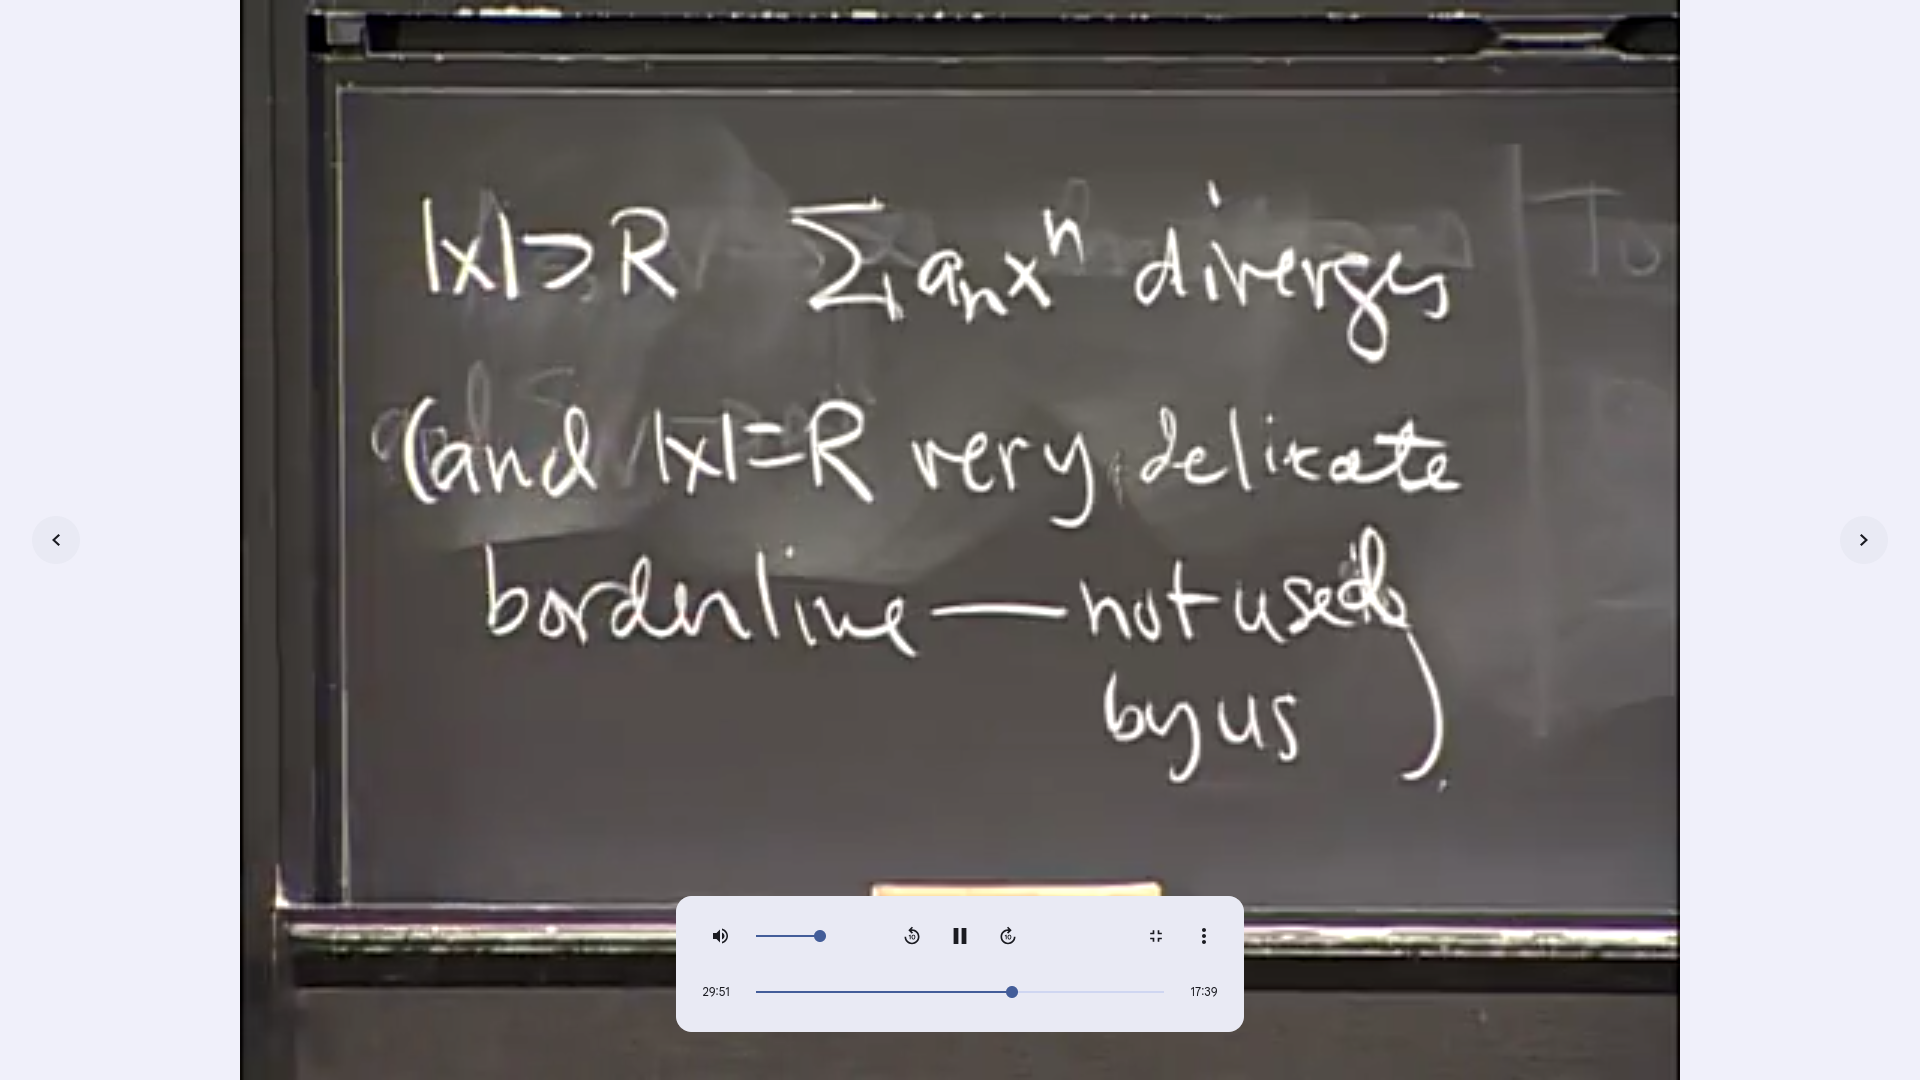 |x| > R Σ aₙxⁿ diverges
(and |x| = R very delicate
borderline — not used
by us)
29:51
17:39